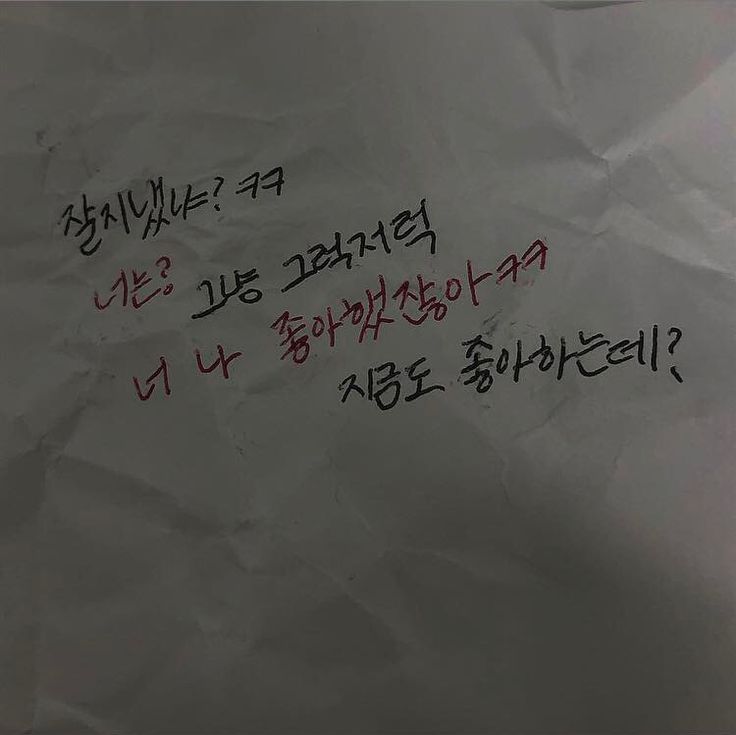 잘지냈냐? ㅋㅋ
너는? 그냥 그럭저럭
너 나 좋아했잖아 ㅋㅋ
지금도 좋아하는데?